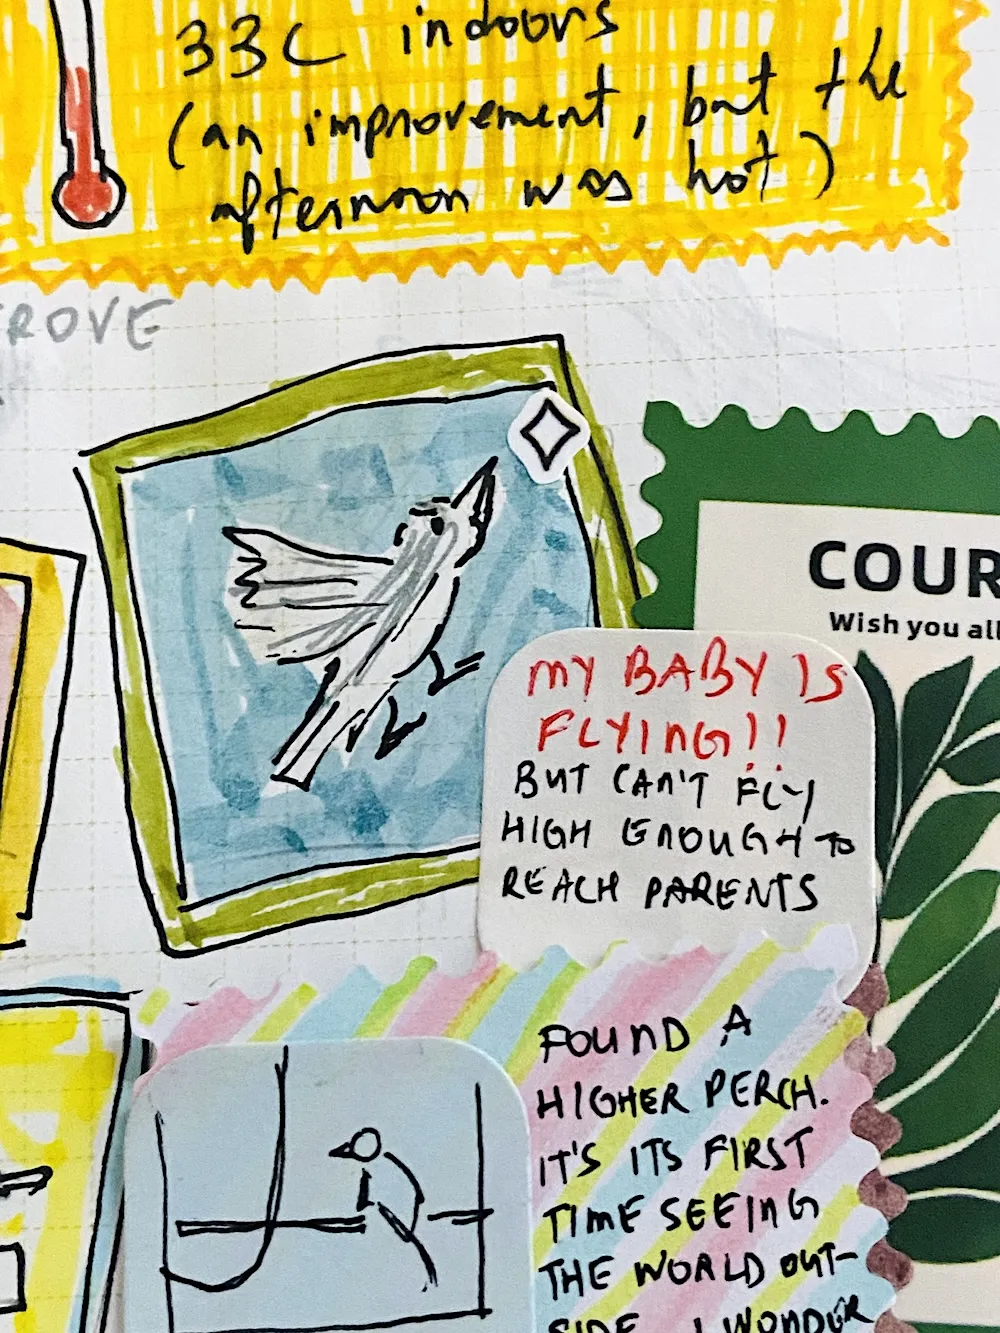 33C indoors
(an improvement, but the
afternoon was hot)
ROVE
COUR
Wish you all
MY BABY IS
FLYING!!
BUT CAN'T FLY
HIGH ENOUGH TO
REACH PARENTS
FOUND A
HIGHER PERCH.
IT'S ITS FIRST
TIME SEEING
THE WORLD OUT-
SIDE. I WONDER